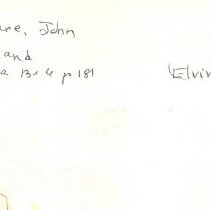 re, John
and
a Bk 4 p 181 Elvir